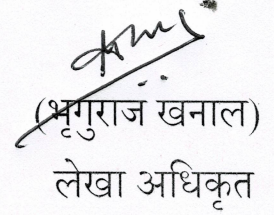 (भृगुराज खनाल)
लेखा अधिकृत